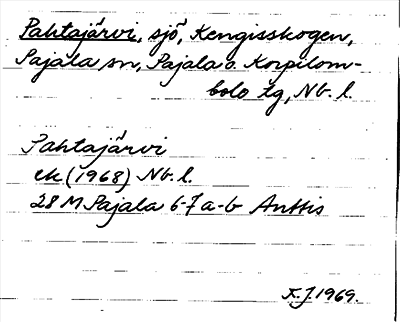 Pahtajärvi, sjö, Kengisskogen,
Pajala sn, Pajala o. Korpilom-
bolo tg, Nb. l.
Pahtajärvi
ek (1968) Nb. l.
28 M Pajala 6-7 a-b Anttis
K.J. 1969.